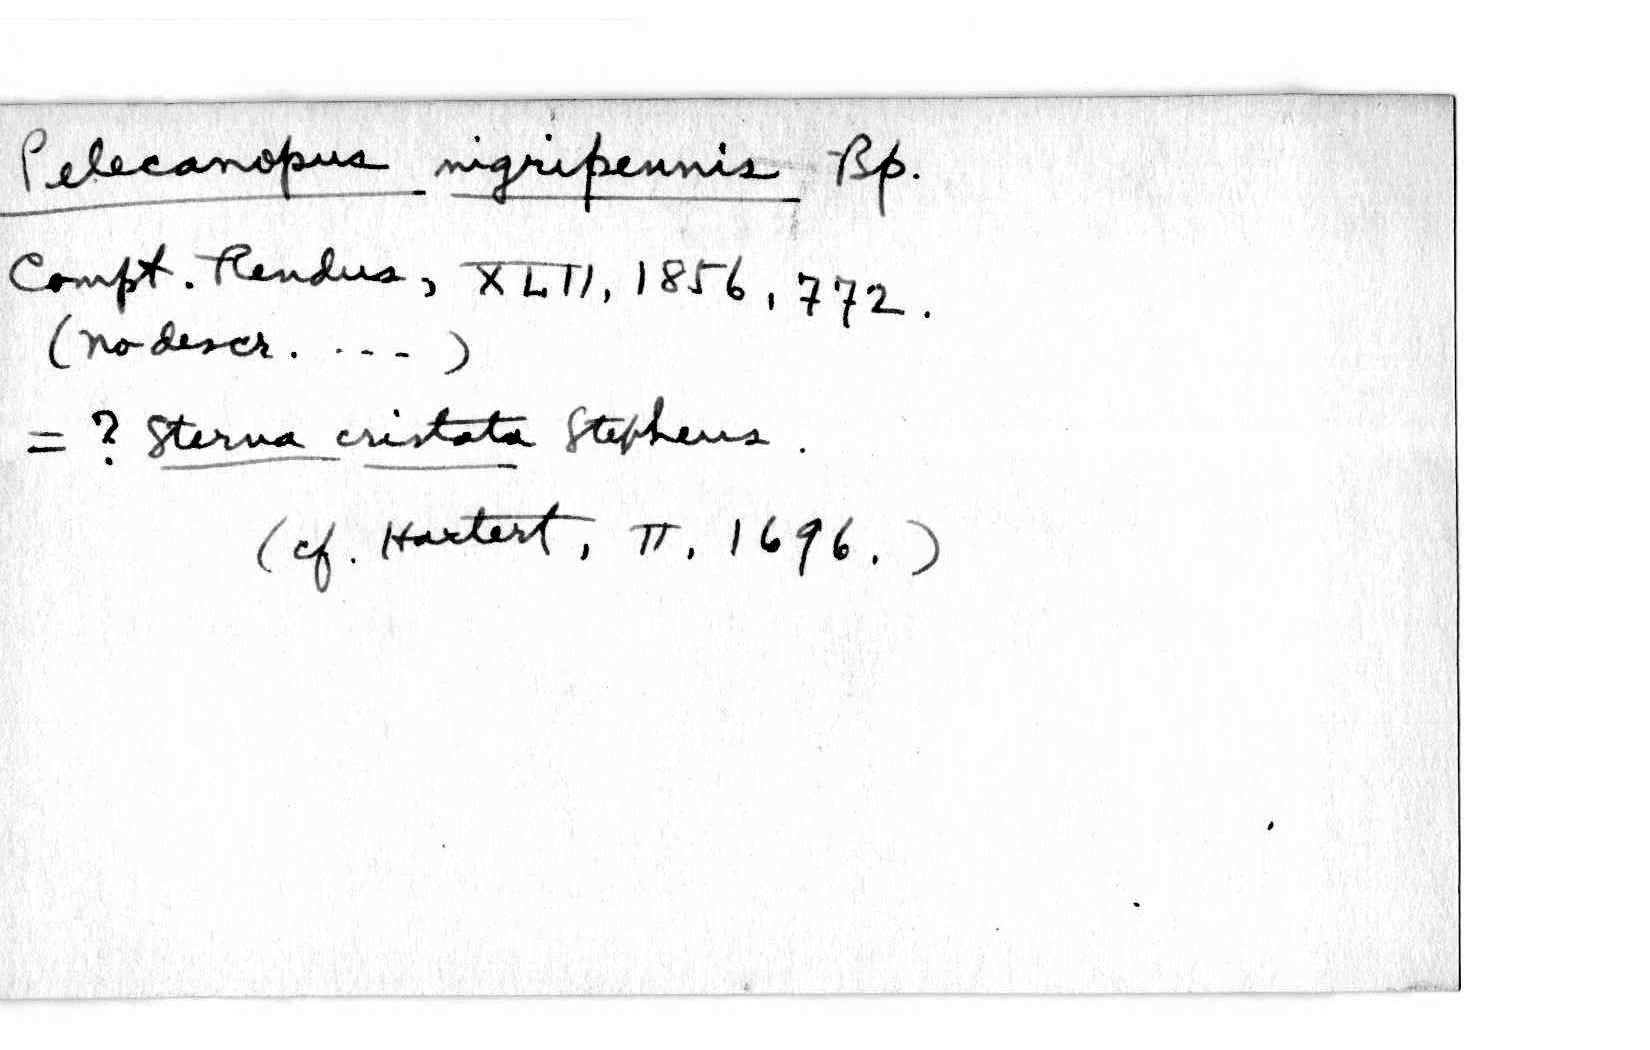 Pelecanopus nigripennis Bp.
Compt. Rendus, XLII, 1856, 772.
(no descr. . - - - )
= ? Sterna cristata Stephens.
(cf. Hartert, II. 1696.)